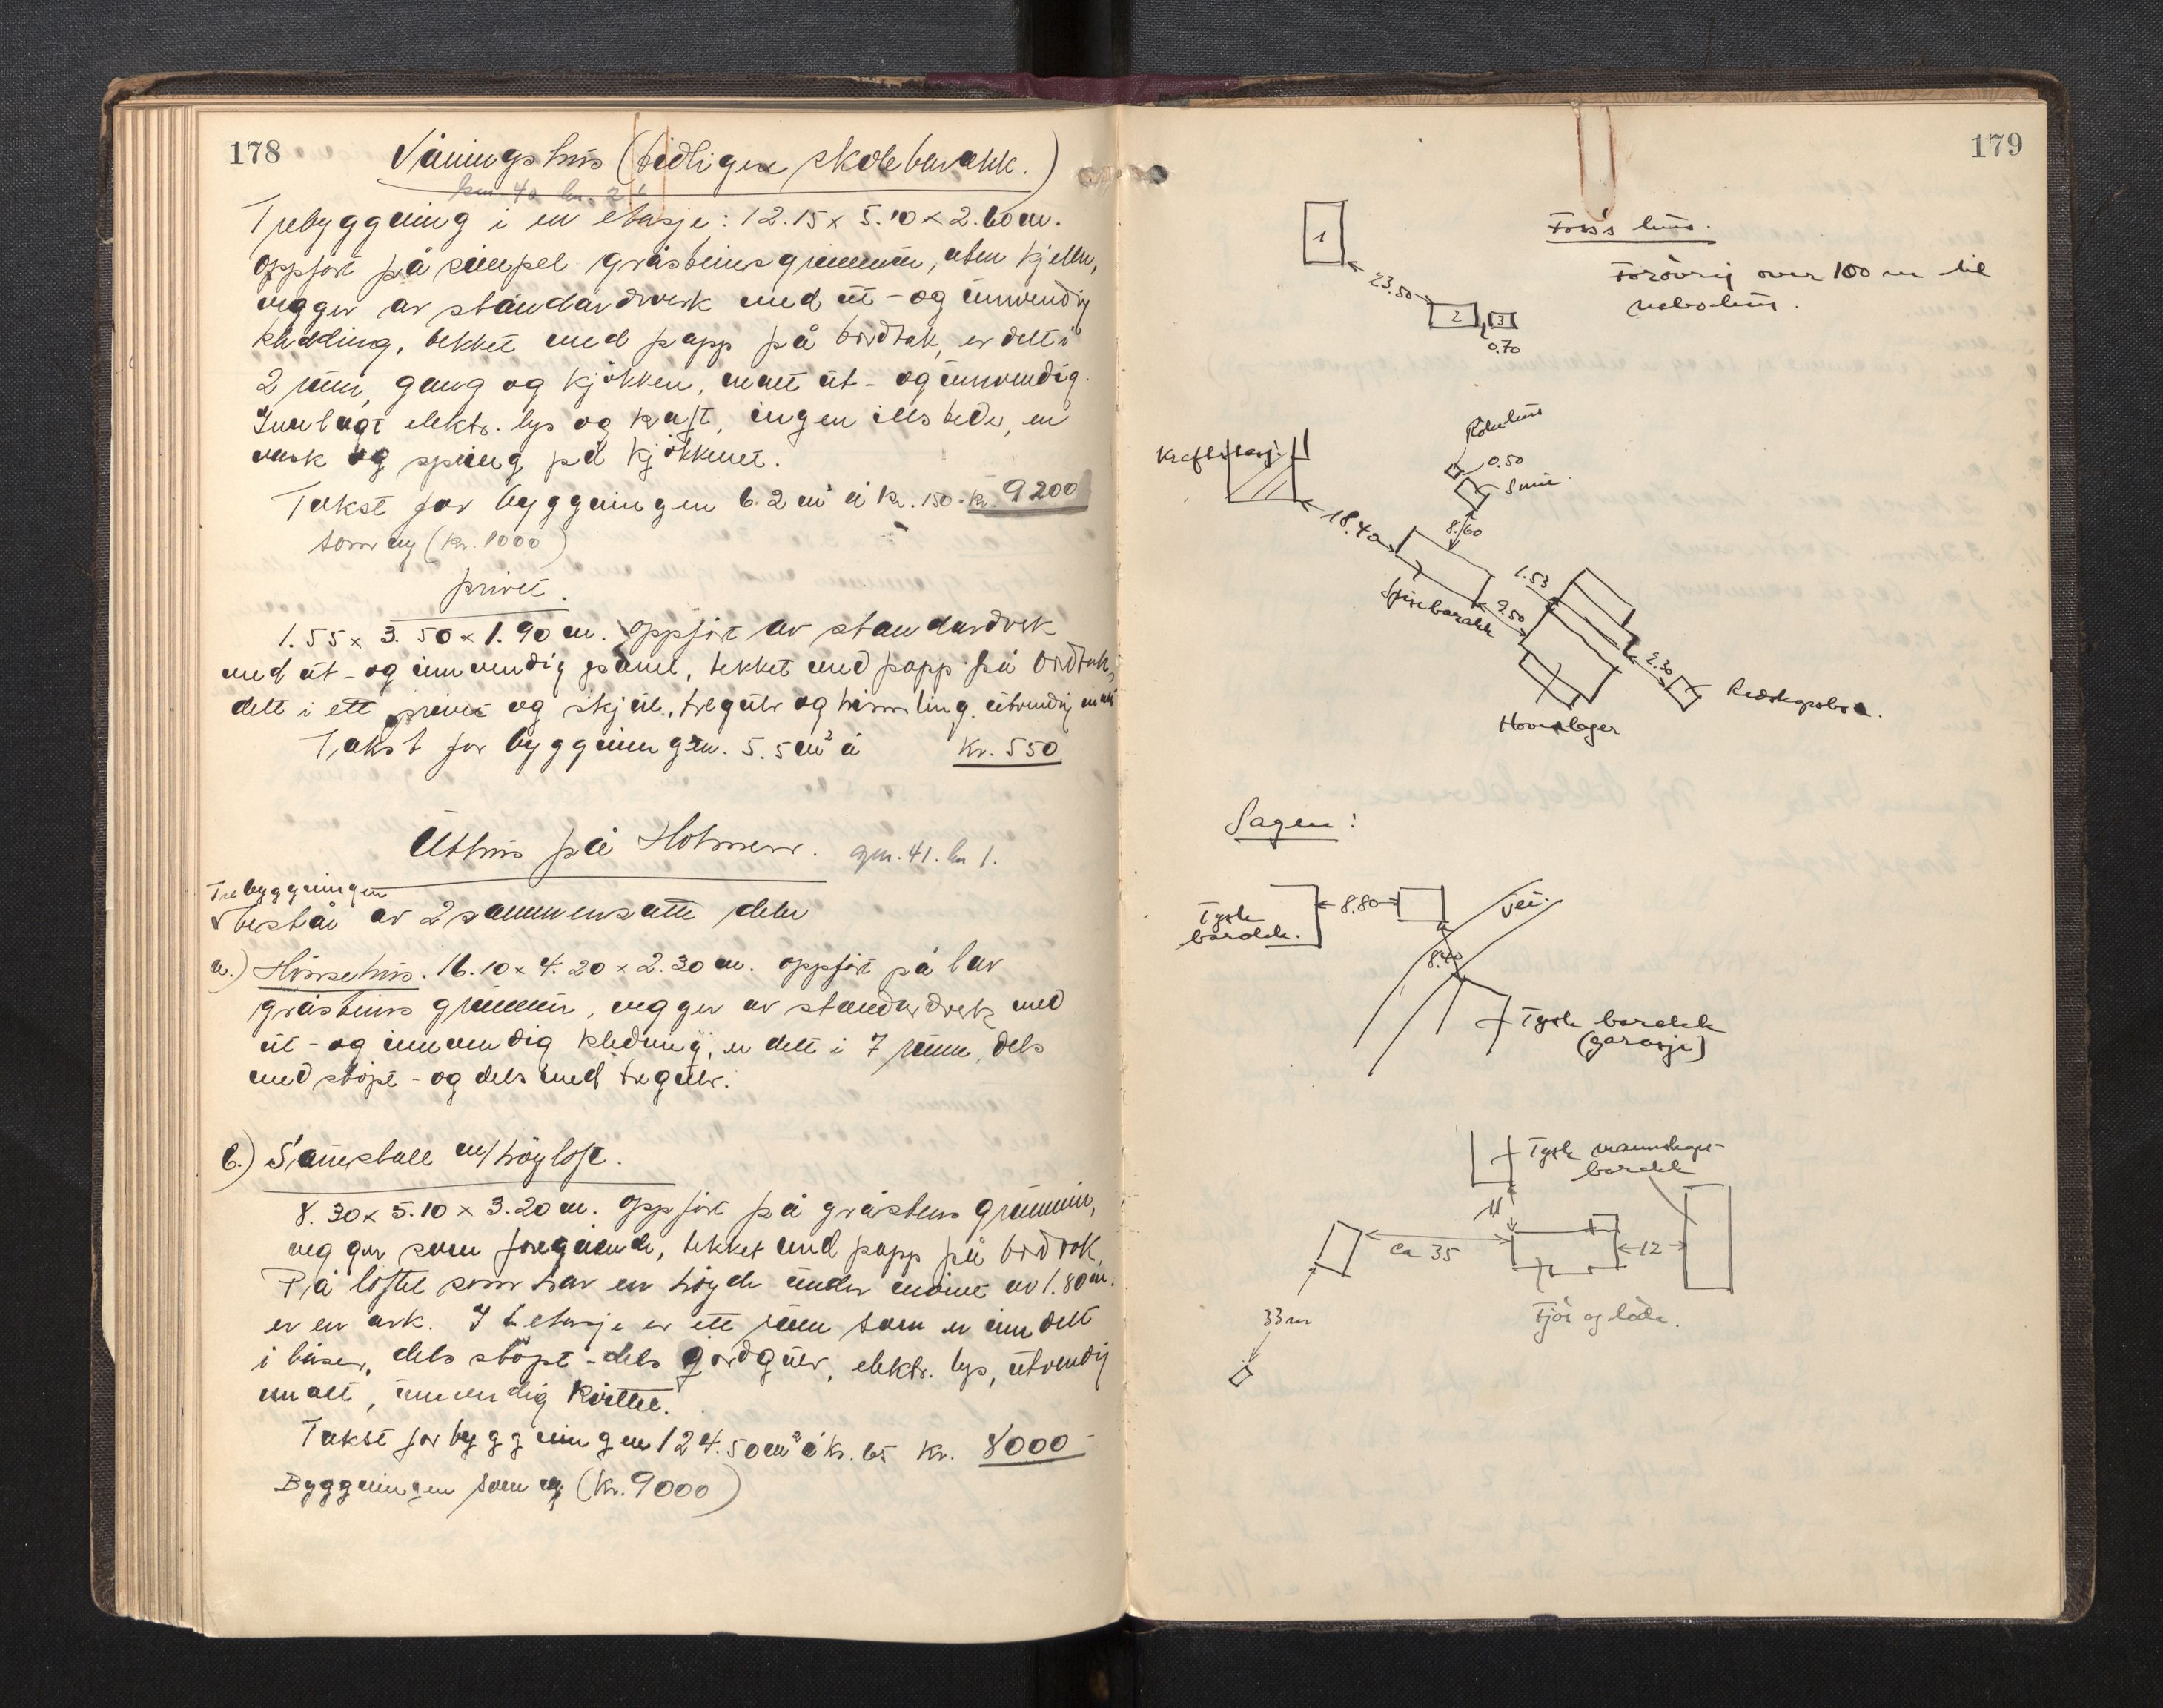 178
Våningshus (tidligere skolebarakk.)
Trebyggning i en etasje: 12.15 x 5.10 x 2.60 m.
Oppført på simpel gråsteinsgrunnmur, uten kjeller,
vegger av standardverk med ut- og innvendig
kledding, tekket med papp på bordtak, er delt i
2 rum, gang og kjøkken, malt ut- og innvendig.
Innlagt elektr. lys og kraft, ingen ildsteder, en
vask og spring på kjøkkenet.
Takst for byggningen 62 m² à kr. 150.- kr. 9200
som ny (kr. 1000 )
privet.
1.55 x 3.50 x 1.90 m. Oppført av standardverk
med ut- og innvendig panel, tekket med papp på bordtak,
delt i ett privet og skjul, tregulv og himling, utvendig malt
Takst for byggningen. 5.5 m² à kr. 550
Uthus på Holmen. gn. 41. bn 1.
Trebyggningen
består av 2 sammensatte deler
a.) Hønsehus. 16.10 x 4.20 x 2.30 m. oppført på lav
gråsteins grunnmur, vegger av standardverk med
ut- og innvendig kledning, er delt i 7 rum, dels
med støpt- og dels med tregulv.
b.) Sauestall m/høyloft.
8.30 x 5.10 x 3.20 m. Oppført på gråsteins grunnmur,
vegger som foregående, tekket med papp på bordtak
På loftet som har en høyde under mønet av 1.80 m.
er en ark. I 1. etasje er ett rum som er inndelt
i båser, dels støpt- dels jordgulv, elektr. lys, utvendig
malt, innvendig kvittet.
Takst for byggningen 124.50 m² à kr. 65 kr. 8000
Byggningen som ny (kr. 9000)
179
Foss's hus.
Forøvrig over 100 m til
nabohus.
1
23.50
2
3
0.70
Kraftstasj.
Rökehus
0.50
Smie.
8.60
18.40
Spisebarakk
1.53
9.50
2.30
Redskapsbu.
Hovedlager
Sagen:
Tysk
barakk.
8.80
Vei.
8.40
Tysk barakk
(garasje)
Tysk mannskaps-
barakk
11
ca 35
12
33 m
Fjös og låde.